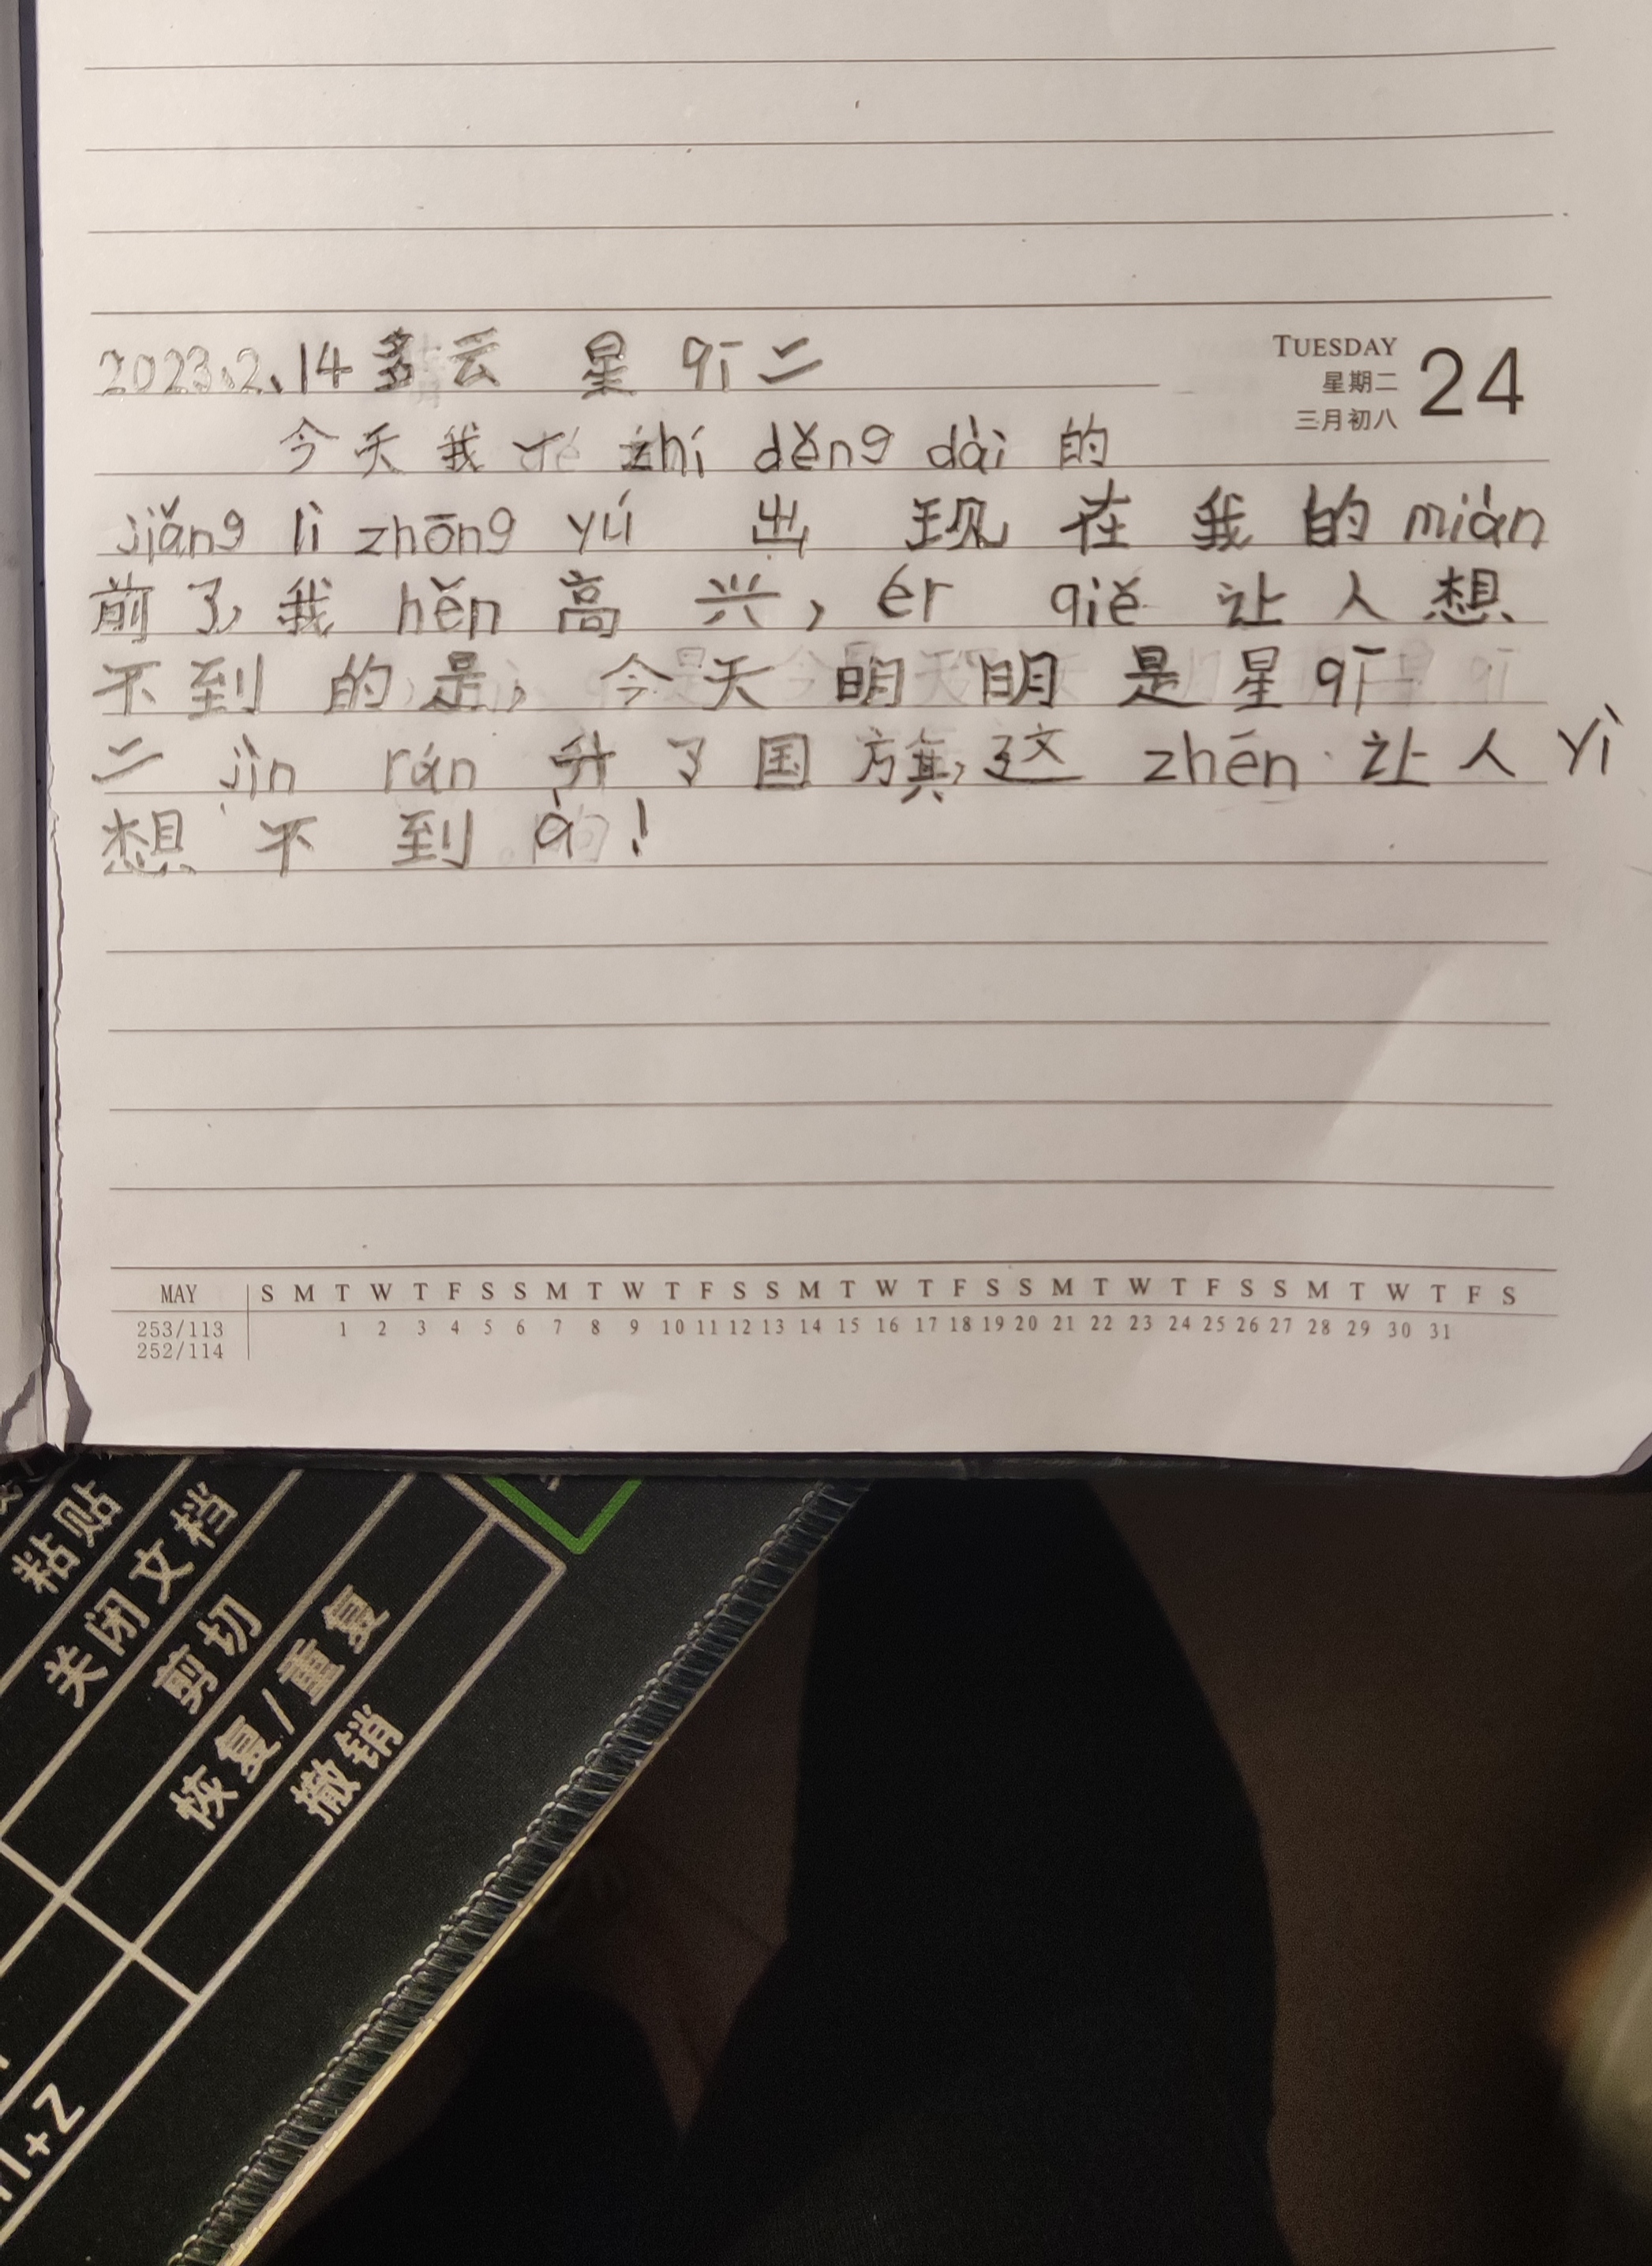 2023.2.14 多云 星 qī 二
TUESDAY
星期二
三月初八
24
今天我 zhí děng dài 的
jiǎng lì zhōng yú 出现在我的 miàn
前了,我 hěn 高兴, ér qiě 让人想
不到的是, 今天明明是星 qī
二 jìn rán 升了国旗,这 zhēn 让人 yì
想不到 à!
MAY S M T W T F S S M T W T F S S M T W T F S S M T W T F S S M T W T F S
253/113 1 2 3 4 5 6 7 8 9 10 11 12 13 14 15 16 17 18 19 20 21 22 23 24 25 26 27 28 29 30 31
252/114
粘贴
关闭文档
剪切
恢复/重复
撤销
+Z